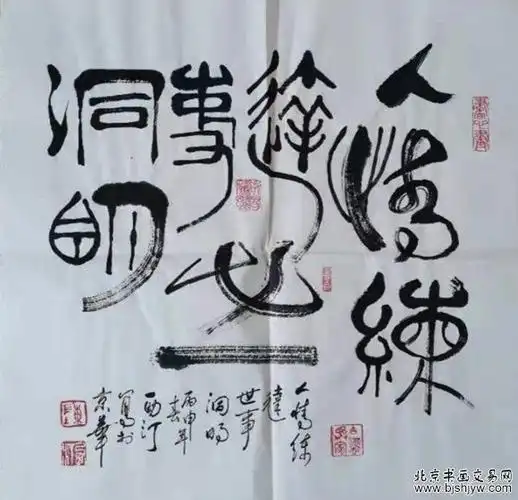 人情練
達世
事
洞明
人情練
達
世事
洞明
丙申年
春
西汀
寫於
京華
北京书画交易网
www.bjshjyw.com